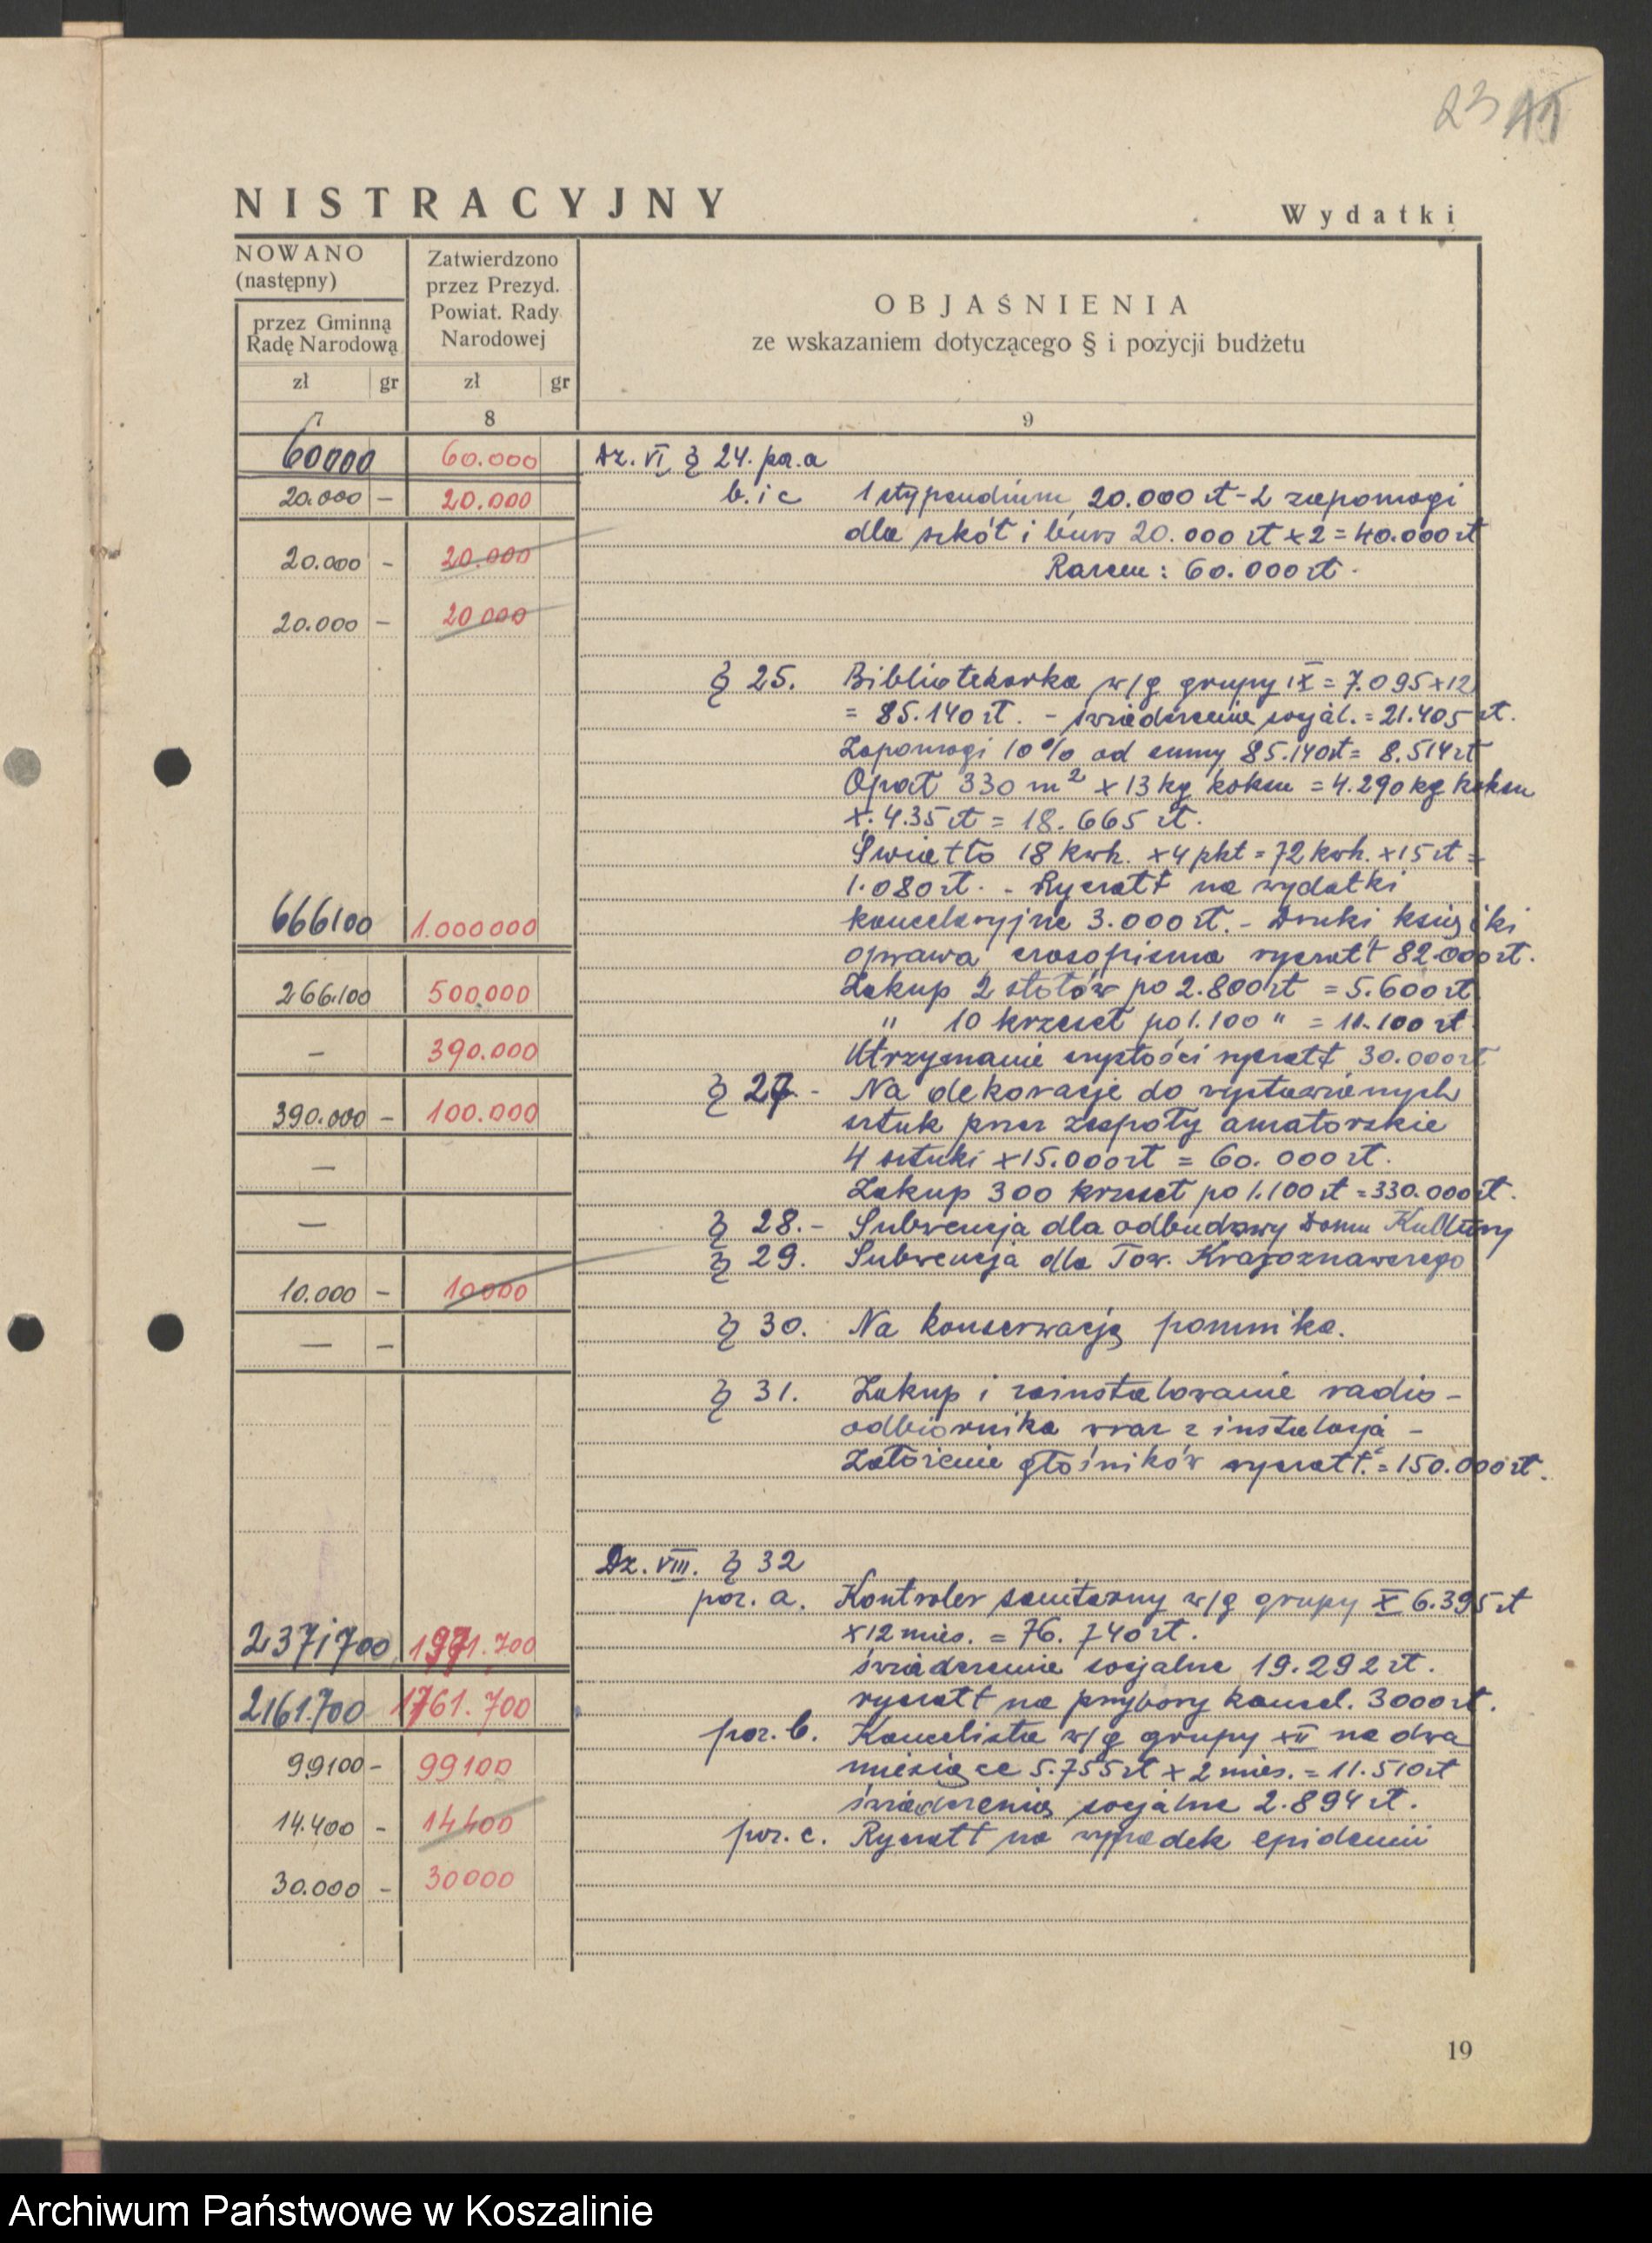 23
NISTRACYJNY
Wydatki
NOWANO
(następny)
przez Gminną
Radę Narodową
Zatwierdzono
przez Prezyd.
Powiat. Rady
Narodowej
OBJAŚNIENIA
ze wskazaniem dotyczącego § i pozycji budżetu
zł gr zł gr
7 8 9
60000 60.000 Dz. VI § 24. poz. a
20.000 - 20.000 b. i c 1 stypendium 20.000 zł - 2 zapomogi
dla szkół i burs 20.000 zł x 2 = 40.000 zł
20.000 - 20.000 Razem: 60.000 zł.
20.000 - 20 000
§ 25. Bibliotekarka w/g grupy IX = 7.095 x 12
= 85.140 zł. - świadczenia socjal. = 21.405 zł.
Zapomogi 10% od sumy 85.140 zł = 8.514 zł
Opał 330 m² x 13 kg koksu = 4.290 kg koksu
x 4.35 zł = 18.665 zł.
Światło 18 kwh. x 4 pkt = 72 kwh. x 15 zł =
1.080 zł. - Ryczałt na wydatki
666100 1.000000 kancelaryjne 3.000 zł. - Druki, książki
oprawa czasopisma ryczałt 82.000 zł.
266.100 500.000 Zakup 2 stołów po 2.800 zł = 5.600 zł
" 10 krzeseł po 1.100 " = 11.100 zł.
- 390.000 Utrzymanie czystości ryczałt 30.000 zł
§ 27. - Na dekoracje do wystawionych
390.000 - 100.000 sztuk przez zespoły amatorskie
- 4 sztuki x 15.000 zł = 60.000 zł.
Zakup 300 krzeseł po 1.100 zł = 330.000 zł.
- § 28. - Subwencja dla odbudowy Domu Kultury
§ 29. Subwencja dla Tow. Krajoznawczego
10.000 - 10000
§ 30. Na konserwację pomnika.
- -
§ 31. Zakup i zainstalowanie radio-
odbiornika wraz z instalacją -
Założenie głośników ryczałt. = 150.000 zł.
Dz. VIII. § 32
poz. a. Kontroler sanitarny w/g grupy X 6.395 zł
2371700 1971.700 x 12 mies. = 76.740 zł.
świadczenia socjalne 19.292 zł.
2161.700 1761.700 ryczałt na przybory kancel. 3000 zł.
poz. b. Kancelista w/g grupy XII na dwa
99100 - 99100 miesiące 5.755 zł x 2 mies. = 11.510 zł
świadczenia socjalne 2.894 zł.
14.400 - 14400 poz. c. Ryczałt na wypadek epidemii
30.000 - 30000
19
Archiwum Państwowe w Koszalinie